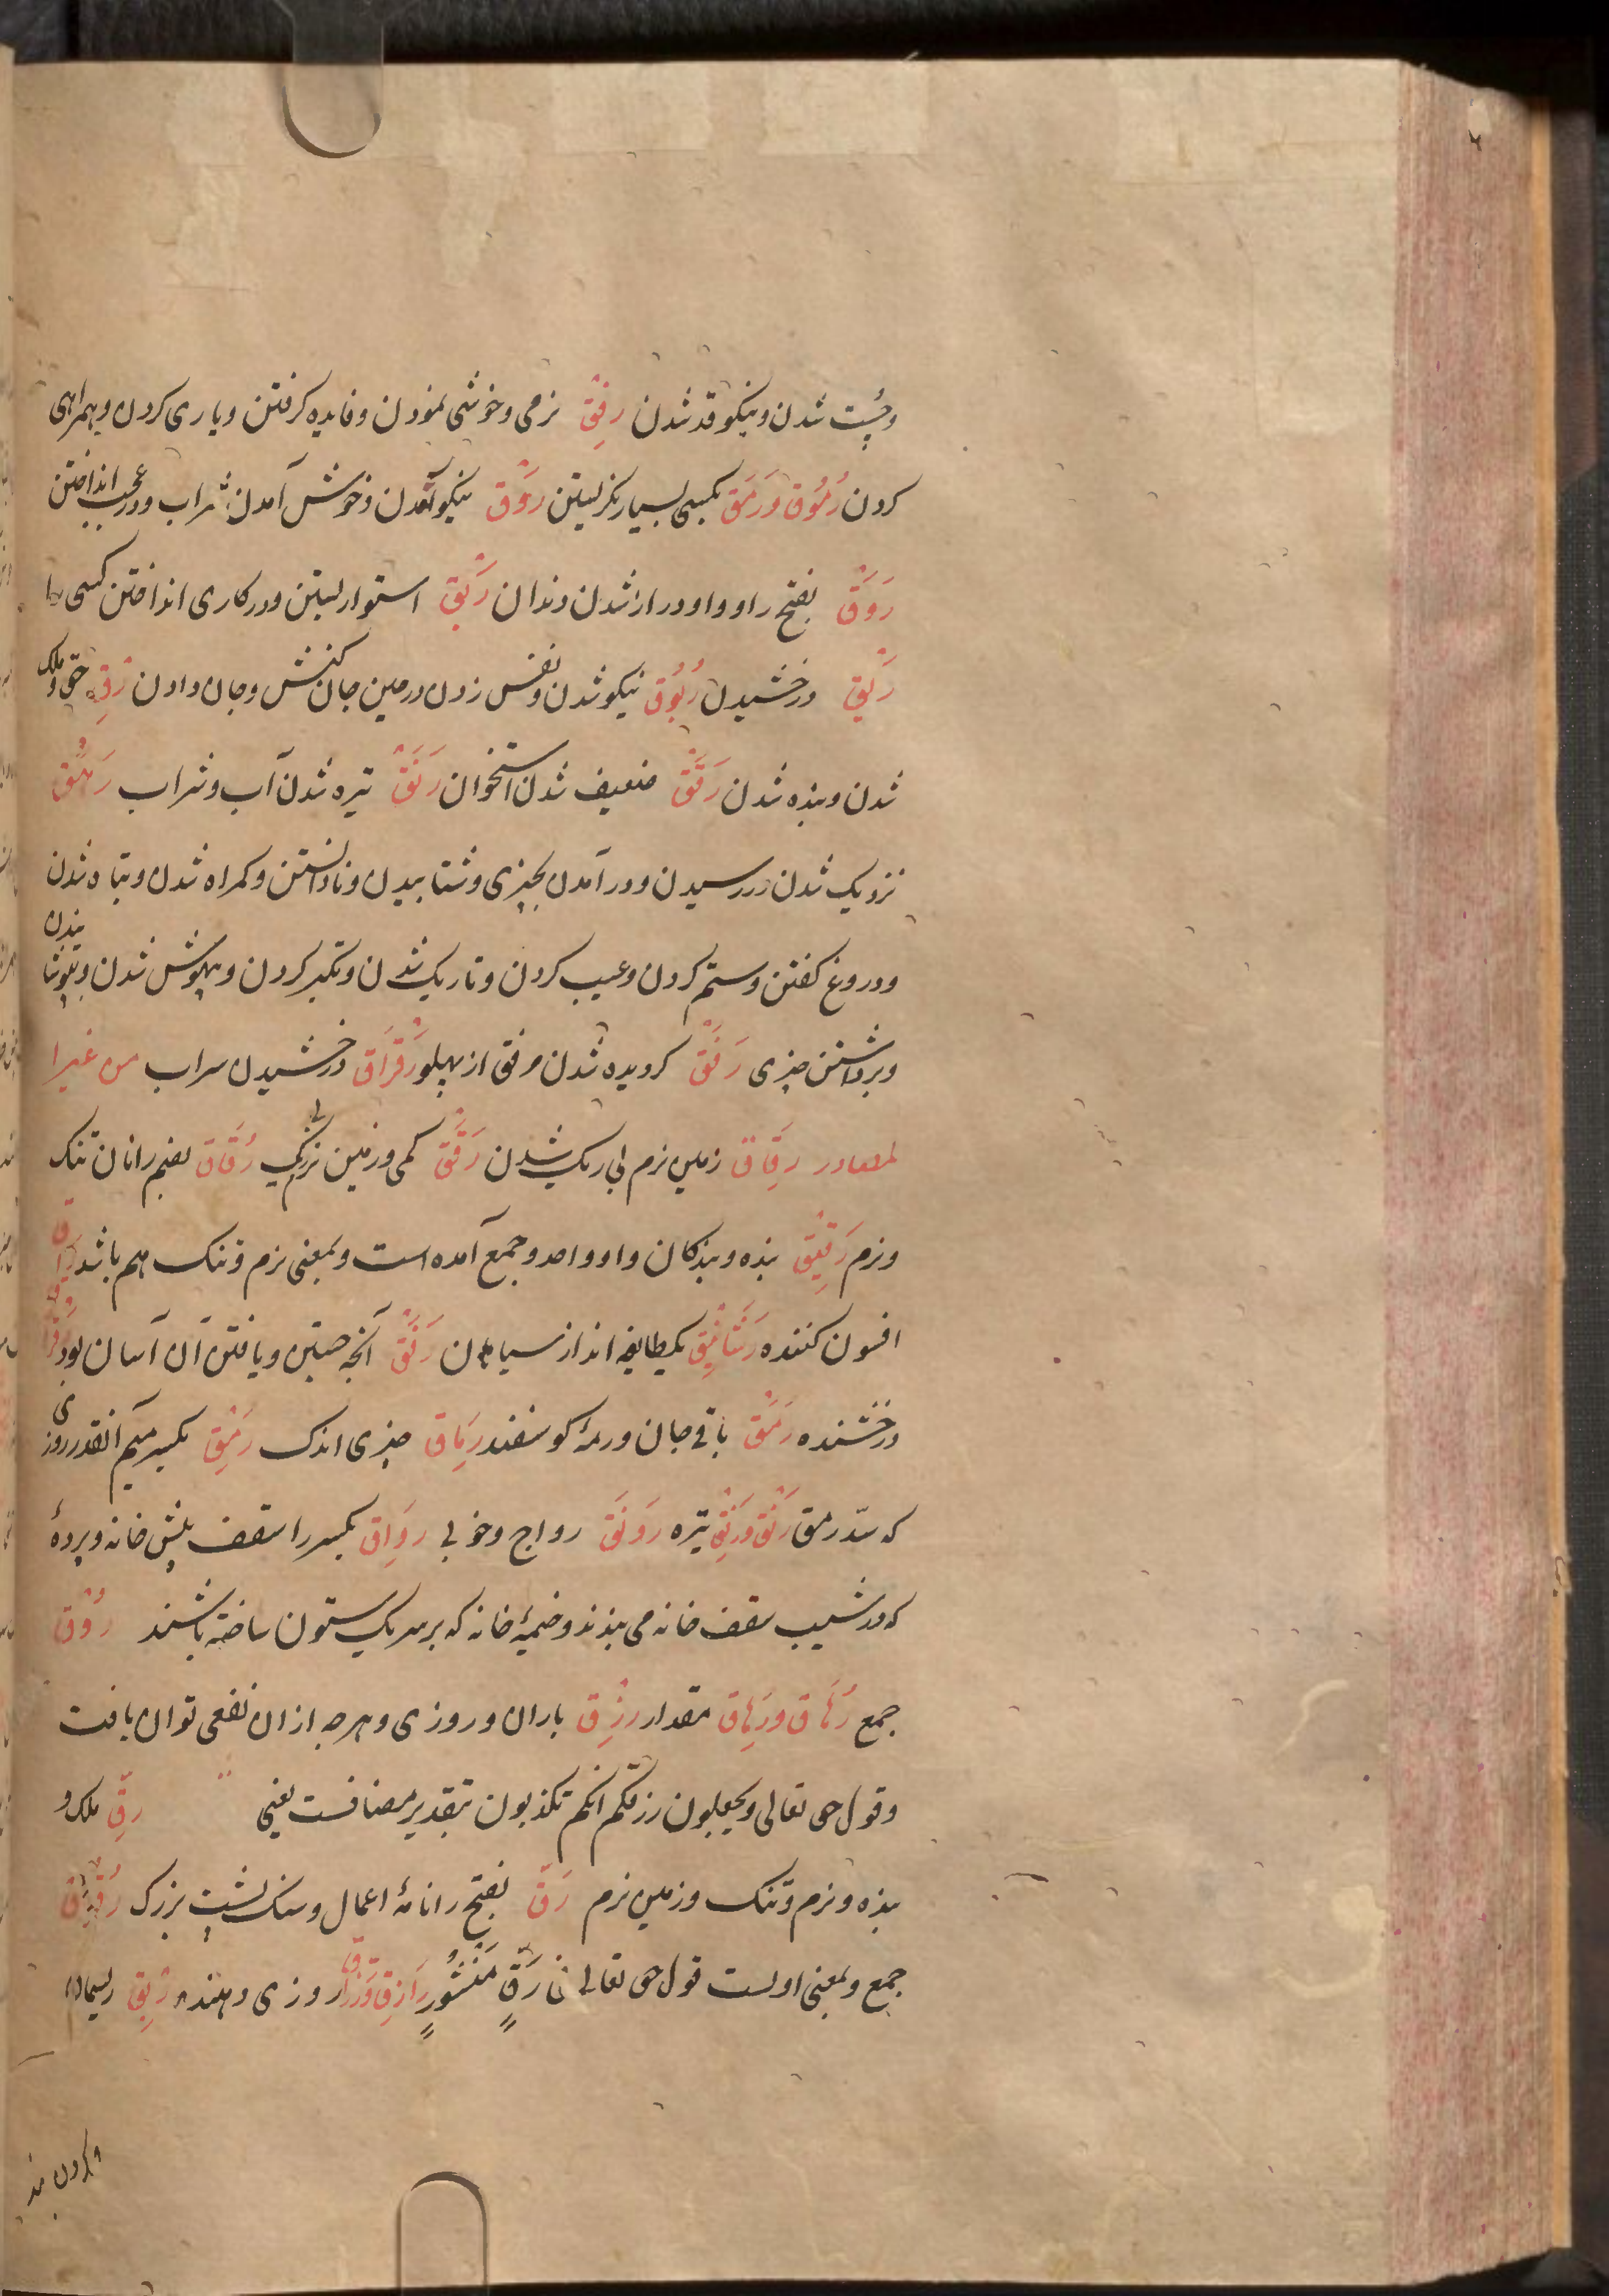 وچست شدن ونیکو قد شدن رِفْق نرمی وخوشی نمودن وفایده کرفتن ویاری کردن وهمراهی
کردن رُمُوق ورَمْق بکسی بسیار نکریستن رَوْق نیکو آمدن وخوش آمدن شراب ودر عجب انداختن
رَوَق بفتح را وواو دراز شدن دندان رَبْق استوار بستن ودر کاری انداختن کسی را
رَیْق درخشیدن رُیُوق نیکو شدن ونفس زدن در حین جان کنش وجان دادن رِق حق وملک
شدن وبنده شدن رَقَق ضعیف شدن استخوان رَنَق تیره شدن آب وشراب رَهَق
نزدیک شدن ودر رسیدن ودر آمدن بچیزی وشتابیدن ونادانستن وکمراه شدن وتباه شدن
ودروغ کفتن وستم کردن وعیب کردن وتاریک شدن وتکبر کردن وبیهوش شدن وپوشانیدن
وبرداشتن چیزی رَفَق کردیده شدن مرفق از پهلو رَقْرَاق درخشیدن سراب من غیر ا
لمصادر رقَاق زمین نرم بی ریک شدن رَقَق کمی وزمین نرم رُقَاق بضم را نان تنک
ونرم رَقِیق بنده وبندکان واو واحد وجمع آمده است وبمعنی نرم وتنک هم باشد رَاق
افسون کننده رَسَاتِیق یکطایفه اند از سیاهان رَفَق آنچه جستن ویافتن آن آسان بود رَقْرَاق
درخشنده رَمَق باقی جان ورمهٔ کوسفند رِمَاق چیزی اندک رَمِق بکسر میم آنقدر روزی
که سدّ رمق رَنْق ورَنِق تیره رَونَق رواج وخوبی رِوَاق بکسر را سقف پیش خانه وپردهٔ
که در شیب سقف خانه می بندند وخیمهٔ خانه که بر سر یک ستون ساخته باشند رُوْق
جمع رُهَاق ورِهَاق مقدار رِزْق باران وروزی وهرچه از ان نفعی توان یافت
وقول حق تعالی وتجعلون رزقکم انکم تکذبون بتقدیر مضافست یعنی رِقّ ملک و
بنده ونرم وتنک وزمین نرم رَقّ بفتح را نامهٔ اعمال وسنک پشت بزرک رُقُوق
جمع وبمعنی اولست قول حق تعالی فی رَقٍّ مَنْشُورٍ رَازِق ورَزَّاق روزی دهنده رِبْق ریسمان